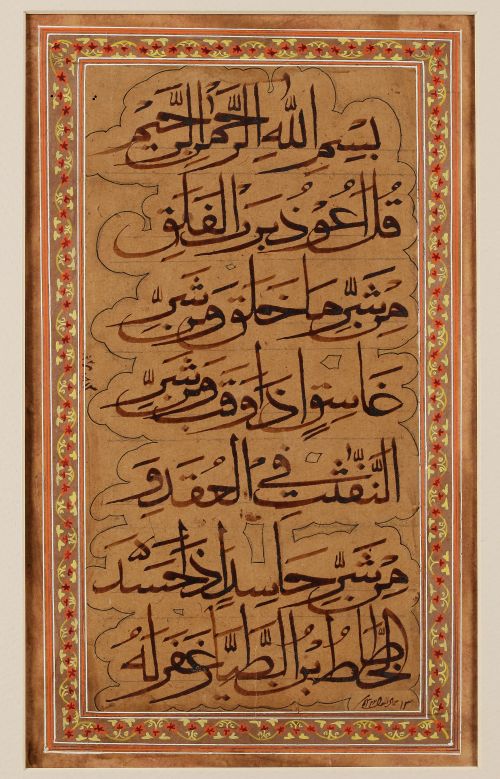 بِسْمِ اللهِ الرَّحْمٰنِ الرَّحِيمِ
قُلْ اَعُوْذُ بِرَبِّ الْفَلَقِ
مِنْ شَرِّ مَا خَلَقَ وَمِنْ شَرِّ
غَاسِقٍ اِذَا وَقَبَ وَمِنْ شَرِّ
النَّفّٰثٰتِ فِي الْعُقَدِ وَ
مِنْ شَرِّ حَاسِدٍ اِذَا حَسَدَ
غفر له